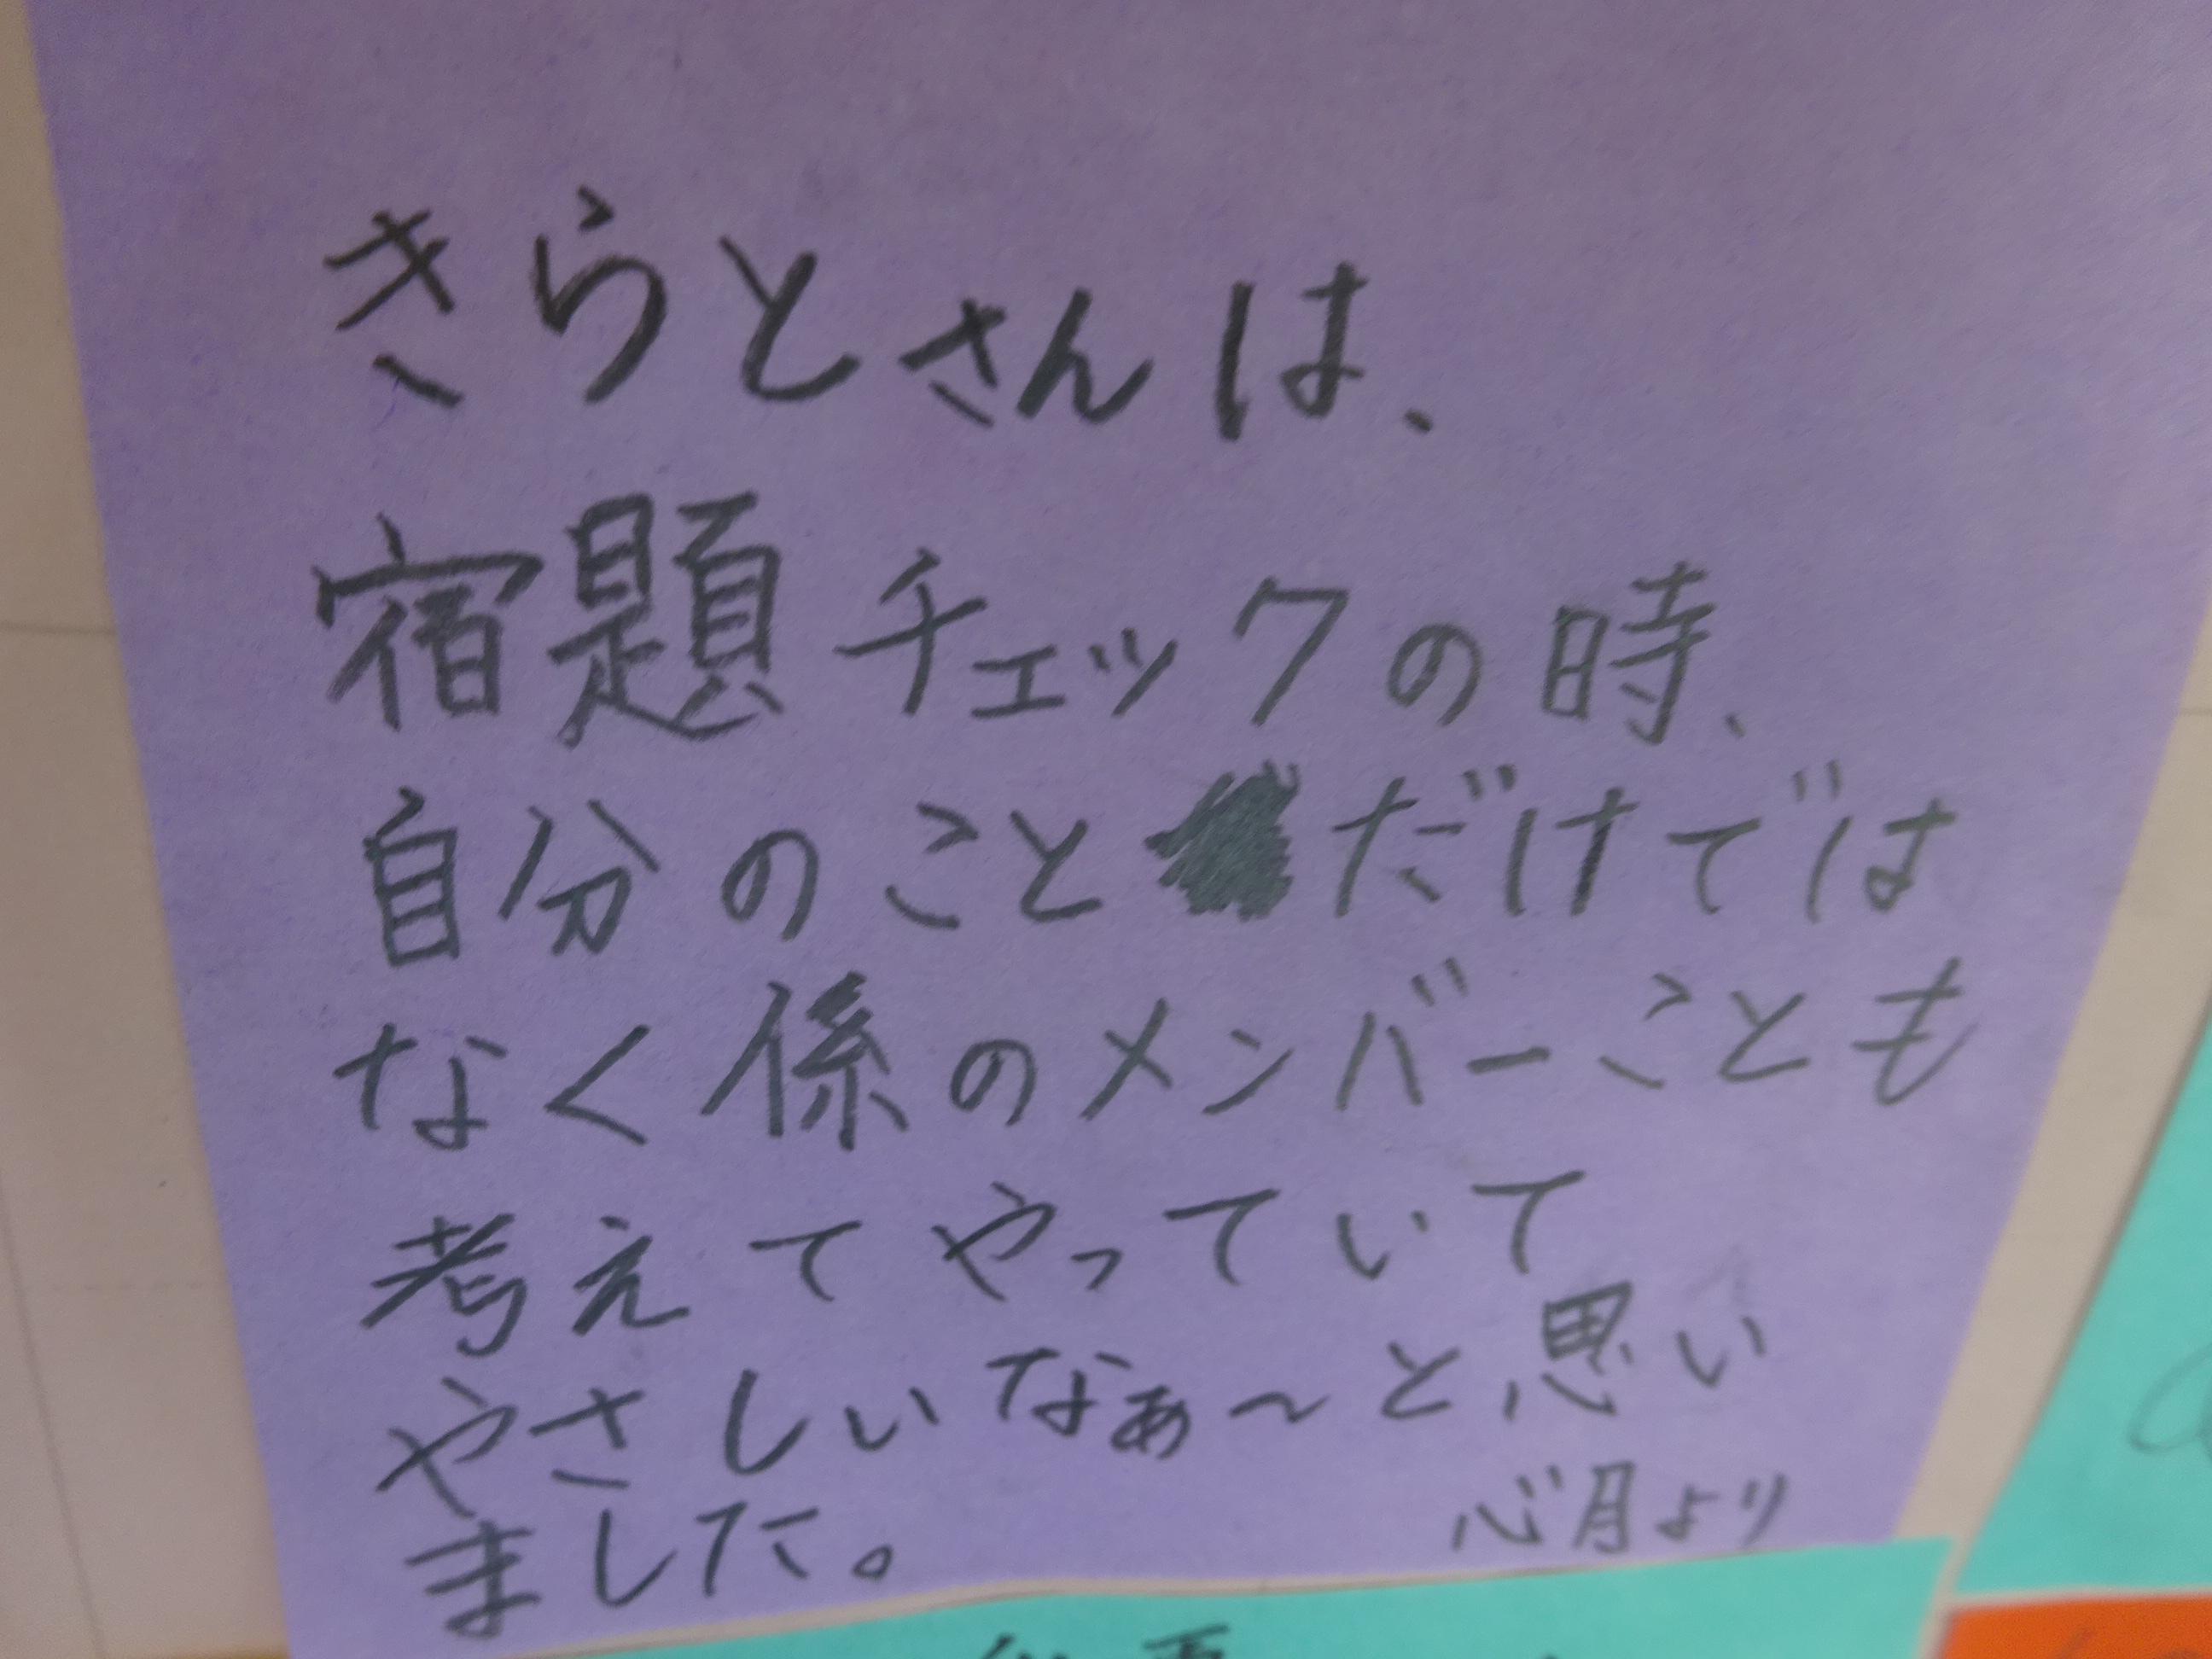 きらとさんは、
宿題チェックの時、
自分のことだけでは
なく係のメンバーことも
考えてやっていて
やさしいなぁ〜と思い
ました。
心月より